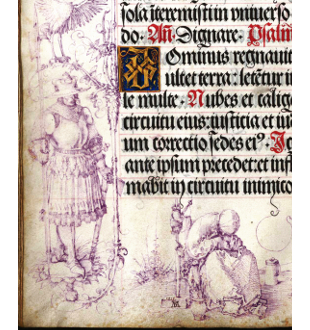 sola iteremisti in vniuerso
do. Añ. Dignare. Psalm
Ominus regnauit
ultet terra: letētur in
le multe. Nubes et calig
circuitu eius: iusticia et iu
um correctio sedes ei⁹. Ig
ante ipsum precedet: et infl
mabit in circuitu inimico